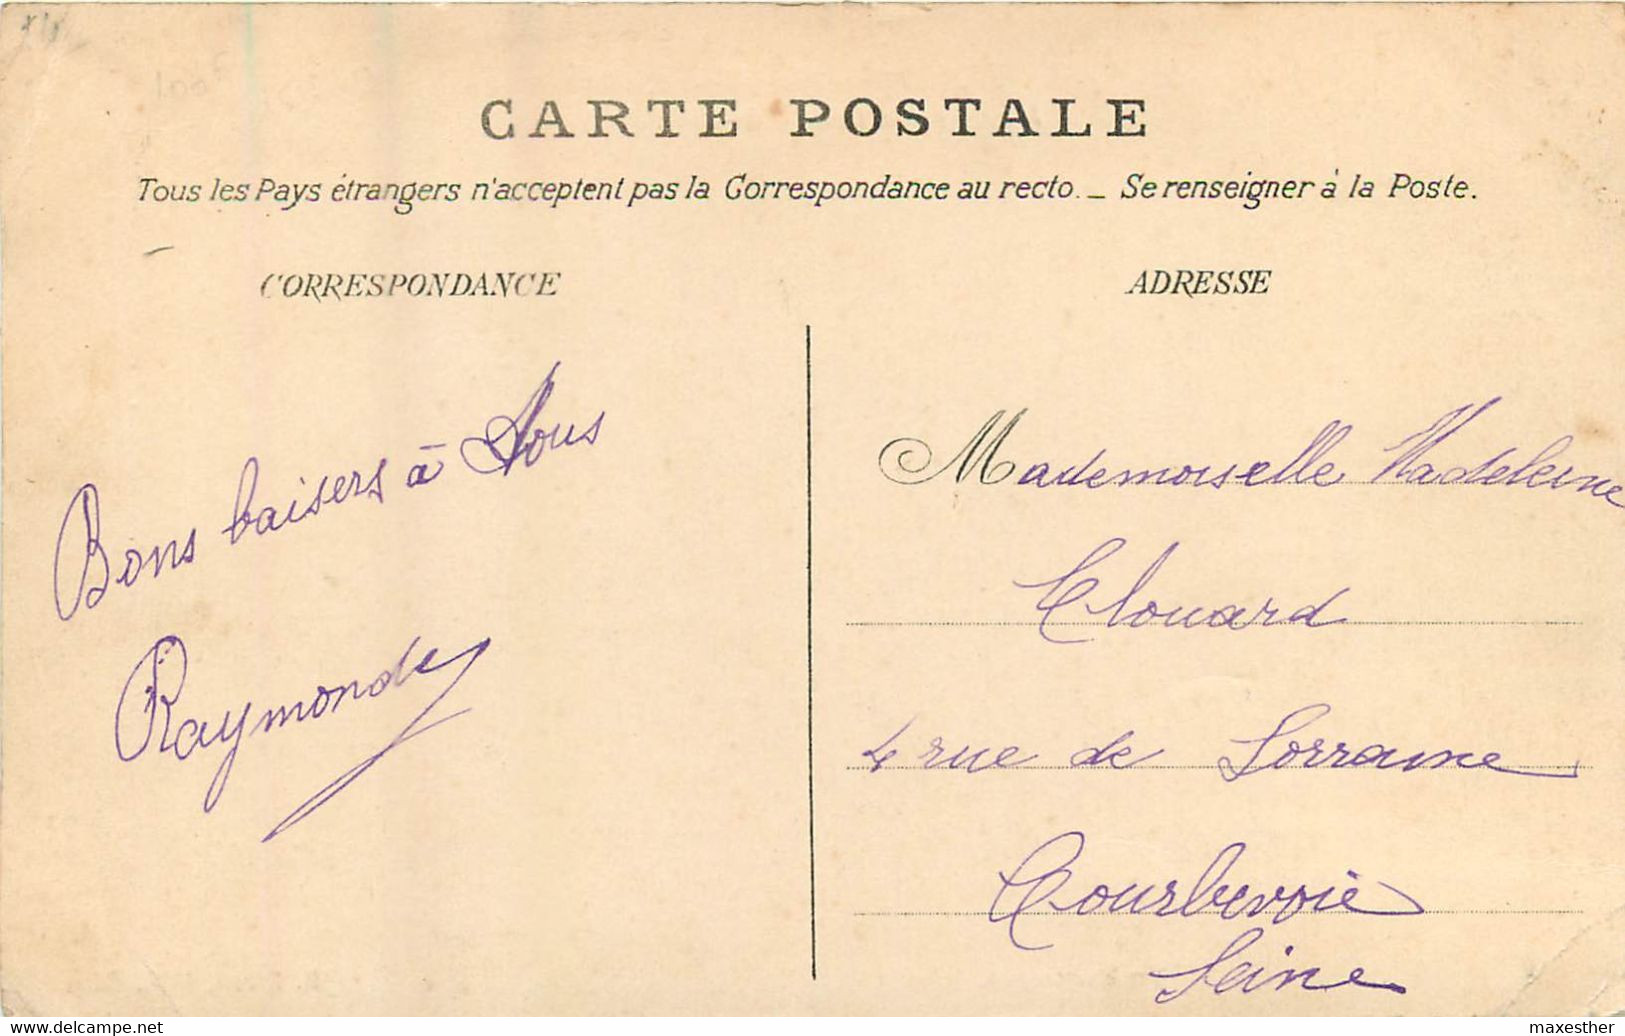 100F
CARTE POSTALE
Tous les Pays étrangers n'acceptent pas la Correspondance au recto. _ Se renseigner à la Poste.
CORRESPONDANCE
Bons baisers à tous
Raymonde
ADRESSE
Mademoiselle Madeleine
Clouard
4 rue de Lorraine
Courbevoie
Seine
www.delcampe.net
maxesther